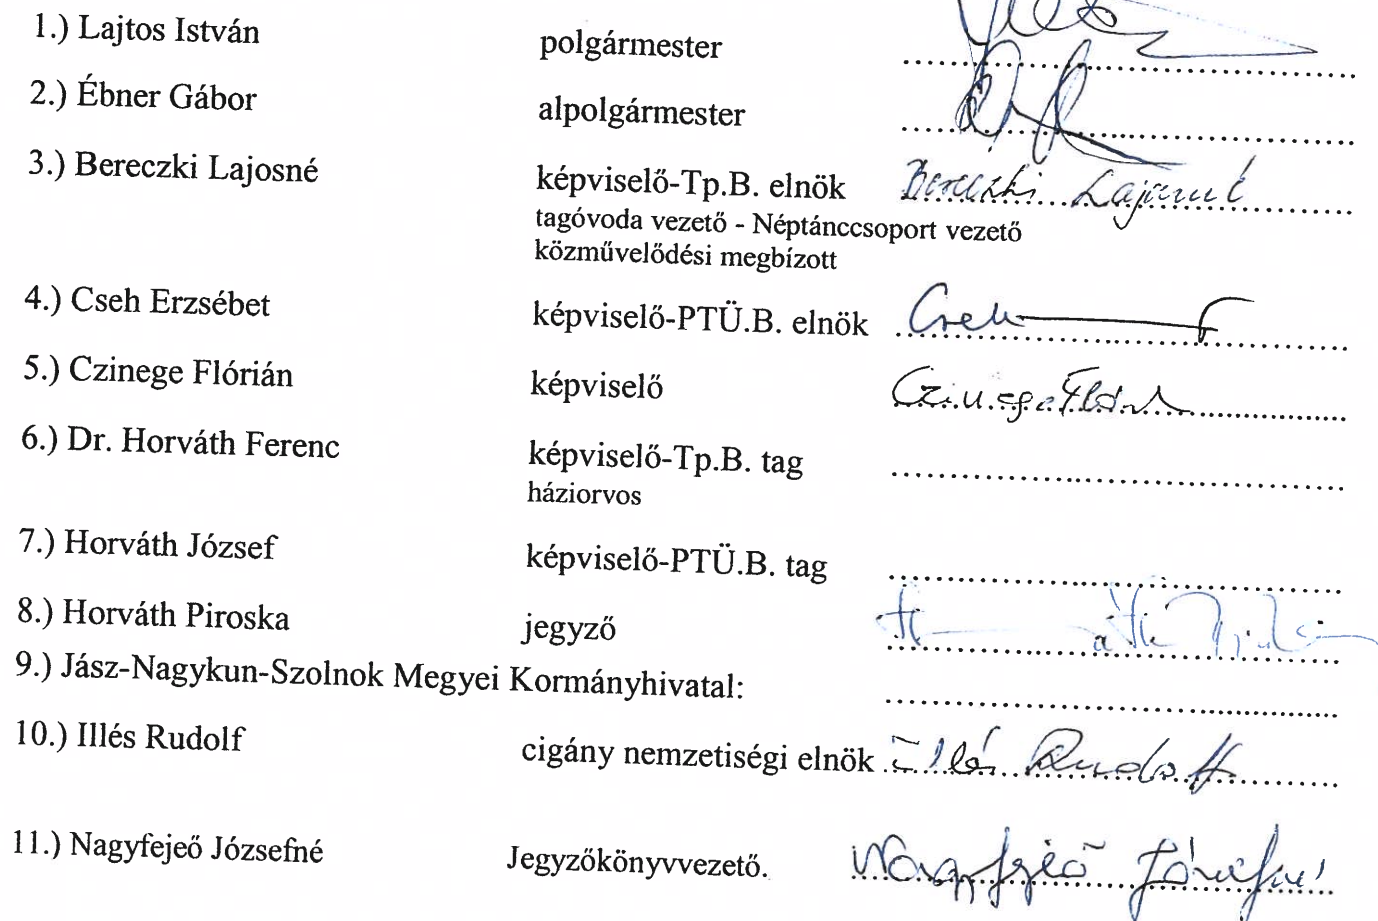 1.) Lajtos István polgármester
2.) Ébner Gábor alpolgármester
3.) Bereczki Lajosné képviselő-Tp.B. elnök Bereczki Lajosné
tagóvoda vezető - Néptánccsoport vezető
közművelődési megbízott
4.) Cseh Erzsébet képviselő-PTÜ.B. elnök Cseh
5.) Czinege Flórián képviselő Czinege Flórián
6.) Dr. Horváth Ferenc képviselő-Tp.B. tag
háziorvos
7.) Horváth József képviselő-PTÜ.B. tag
8.) Horváth Piroska jegyző
9.) Jász-Nagykun-Szolnok Megyei Kormányhivatal:
10.) Illés Rudolf cigány nemzetiségi elnök Illés Rudolf
11.) Nagyfejeő Józsefné Jegyzőkönyvvezető. Nagyfejeő Józsefné